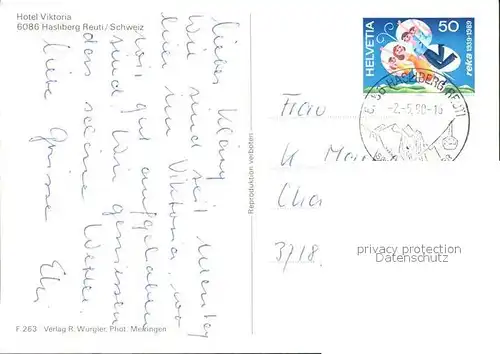 Hotel Viktoria
6086 Hasliberg Reuti / Schweiz
Wir sind seit Montag
hier im Viktoria, wo
wir gut aufgehoben
sind. Wir geniessen
das schöne Wetter.
Liebe Grüsse Elsi
F 263 Verlag R. Würgler, Phot. Meiringen
Reproduktion verboten
HELVETIA
50
reka 1939-1989
6086 HASLIBERG REUTI
-2.-5.90-16
Frau
K
3718
privacy protection
Datenschutz